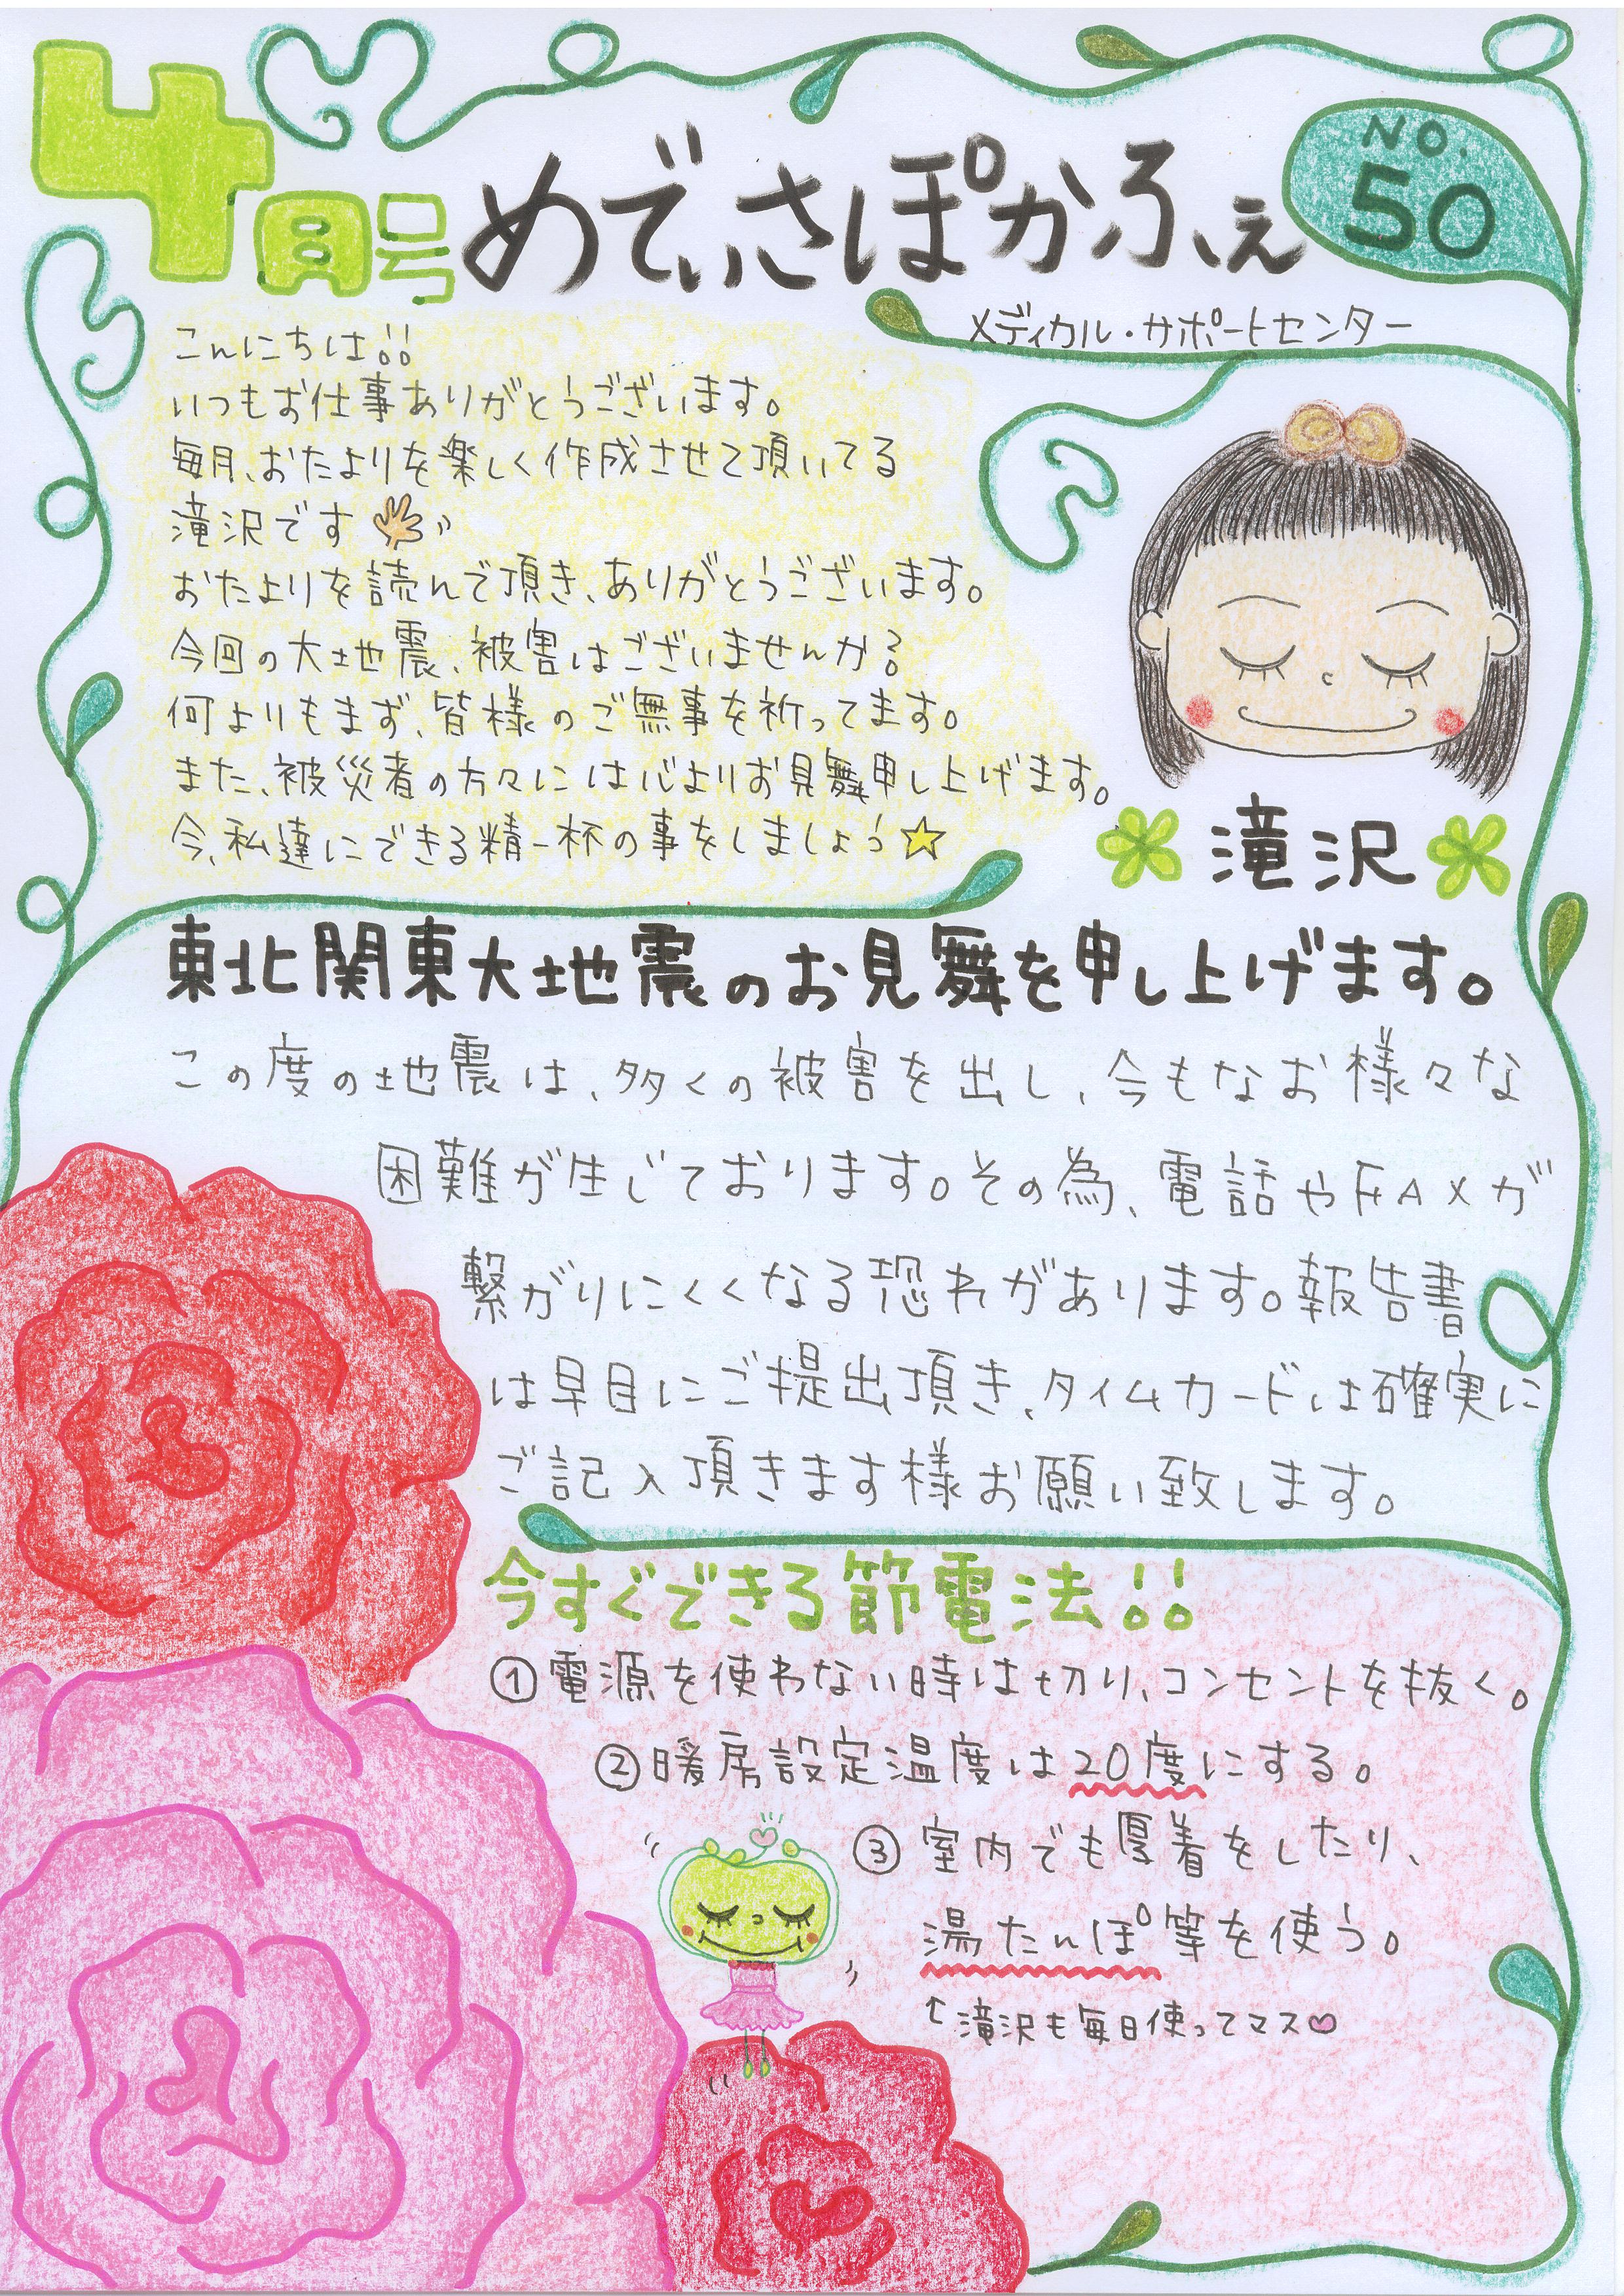 4月号
めでぃさぽかふぇ
NO.
50
メディカル・サポートセンター
こんにちは!!
いつもお仕事ありがとうございます。
毎月、おたよりを楽しく作成させて頂いてる
滝沢です
おたよりを読んで頂き、ありがとうございます。
今回の大地震、被害はございませんか?
何よりもまず、皆様のご無事を祈ってます。
また、被災者の方々には心よりお見舞申し上げます。
今、私達にできる精一杯の事をしましょう☆
滝沢
東北関東大地震のお見舞を申し上げます。
この度の地震は、多くの被害を出し、今もなお様々な
困難が生じております。その為、電話やFAXが
繋がりにくくなる恐れがあります。報告書
は早目にご提出頂き、タイムカードは確実に
ご記入頂きます様お願い致します。
今すぐできる節電法!!
①電源を使わない時は切り、コンセントを抜く。
②暖房設定温度は20度にする。
③室内でも厚着をしたり、
湯たんぽ等を使う。
↑滝沢も毎日使ってマス♡